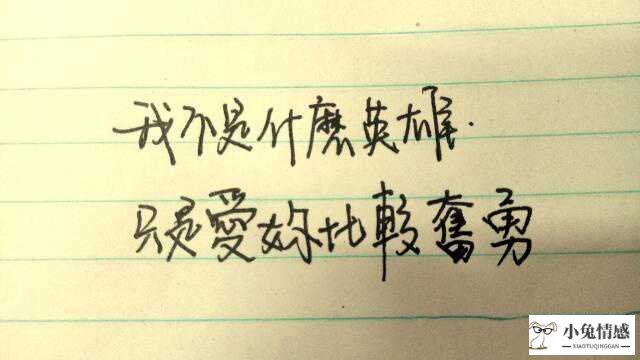 我不是什麽英雄.
只是愛妳比較奮勇
小兔情感
XIAOTUQINGGAN